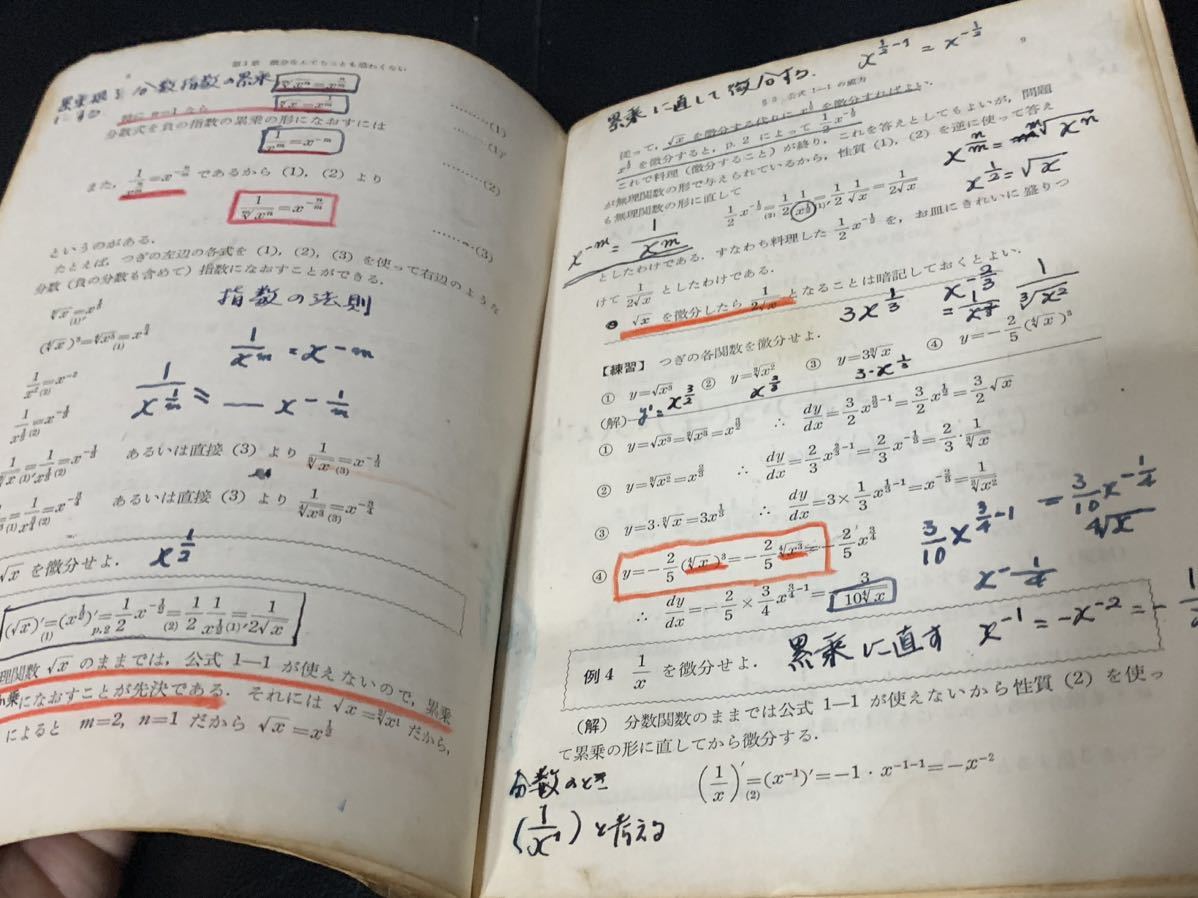 8
第1章 微分なんてちっとも恐わくない
累乗根を分数指数の累乗
に直す
\sqrt[m]{x^n}=x^{\frac{n}{m}} ………(1)
特に n=1 なら \sqrt[m]{x}=x^{\frac{1}{m}} ………(1)′
分数式を負の指数の累乗の形になおすには
\frac{1}{x^m}=x^{-m} ………(2)
また, \frac{1}{x^{\frac{n}{m}}}=x^{-\frac{n}{m}} であるから (1), (2) より
\frac{1}{\sqrt[m]{x^n}}=x^{-\frac{n}{m}} ………(3)
というのがある.
たとえば, つぎの左辺の各式を (1), (2), (3) を使って右辺のような
分数 (負の分数も含めて) 指数になおすことができる.
指数の法則
\frac{1}{x^2}=x^{-2} (2)
\frac{1}{x^m}=x^{-m}
\frac{1}{x^{\frac{1}{m}}} = x^{-\frac{1}{m}}
あるいは直接 (3) より \frac{1}{\sqrt[3]{x}}=x^{-\frac{1}{3}} (3)
あるいは直接 (3) より \frac{1}{\sqrt[4]{x^3}}=x^{-\frac{3}{4}} (3)
x^{\frac{1}{2}}
\sqrt{x} を微分せよ.
(\sqrt{x})′=(x^{\frac{1}{2}})′=\frac{1}{2}x^{-\frac{1}{2}}=\frac{1}{2}\frac{1}{x^{\frac{1}{2}}}=\frac{1}{2\sqrt{x}}
(1) p.2 (2) (1)′
理関数 \sqrt{x} のままでは, 公式 1—1 が使えないので, 累乗
になおすことが先決である. それには \sqrt{x}=\sqrt[2]{x^1} だから,
によると m=2, n=1 だから \sqrt{x}=x^{\frac{1}{2}}
x^{\frac{1}{2}-1}=x^{-\frac{1}{2}}
9
累乗に直して微分する.
§3 公式 1—1 の威力
従って, \sqrt{x} を微分する代わりに x^{\frac{1}{2}} を微分すればよい.
x^{\frac{1}{2}} を微分すると, p.2 によって \frac{1}{2}x^{-\frac{1}{2}}
これで料理 (微分すること) が終り, これを答えとしてもよいが, 問題
が無理関数の形で与えられているから, 性質 (1), (2) を逆に使って答え
も無理関数の形に直して
x^{\frac{1}{2}}=\sqrt{x}
\frac{1}{2}x^{-\frac{1}{2}}=\frac{1}{2}\frac{1}{x^{\frac{1}{2}}}=\frac{1}{2}\frac{1}{\sqrt{x}}=\frac{1}{2\sqrt{x}}
x^{-m}=\frac{1}{x^m}
としたわけである. すなわち料理した \frac{1}{2}x^{-\frac{1}{2}} を, お皿にきれいに盛りつ
けて \frac{1}{2\sqrt{x}} としたわけである.
\sqrt{x} を微分したら \frac{1}{2\sqrt{x}} となることは暗記しておくとよい.
3x^{\frac{1}{3}} x^{-\frac{2}{3}} \frac{1}{\sqrt[3]{x^2}}
【練習】 つぎの各関数を微分せよ.
① y=\sqrt{x^3} ② y=\sqrt[3]{x^2} ③ y=3\sqrt[3]{x} ④ y=-\frac{2}{5}(\sqrt[4]{x})^3
y′= x^{\frac{3}{2}} x^{\frac{2}{3}} 3·x^{\frac{1}{3}}
(解)
① y=\sqrt{x^3}=\sqrt[2]{x^3}=x^{\frac{3}{2}} ∴ \frac{dy}{dx}=\frac{3}{2}x^{\frac{3}{2}-1}=\frac{3}{2}x^{\frac{1}{2}}=\frac{3}{2}\sqrt{x}
② y=\sqrt[3]{x^2}=x^{\frac{2}{3}} ∴ \frac{dy}{dx}=\frac{2}{3}x^{\frac{2}{3}-1}=\frac{2}{3}x^{-\frac{1}{3}}=\frac{2}{3}·\frac{1}{\sqrt[3]{x}}
③ y=3·\sqrt[3]{x}=3x^{\frac{1}{3}} ∴ \frac{dy}{dx}=3×\frac{1}{3}x^{\frac{1}{3}-1}=x^{-\frac{2}{3}}=\frac{1}{\sqrt[3]{x^2}}
④ y=-\frac{2}{5}(\sqrt[4]{x})^3=-\frac{2}{5}\sqrt[4]{x^3}=-\frac{2}{5}x^{\frac{3}{4}}
\frac{3}{10}x^{\frac{3}{4}-1} =\frac{3}{10}x^{-\frac{1}{4}}
\sqrt[4]{x}
∴ \frac{dy}{dx}=-\frac{2}{5}×\frac{3}{4}x^{\frac{3}{4}-1}=-\frac{3}{10\sqrt[4]{x}}
x^{-\frac{1}{4}}
累乗に直す x^{-1}=-x^{-2}=-
例4 \frac{1}{x} を微分せよ.
(解) 分数関数のままでは公式 1—1 が使えないから性質 (2) を使っ
て累乗の形に直してから微分する.
(\frac{1}{x})′=(x^{-1})′=-1·x^{-1-1}=-x^{-2}
(2)
分数のとき
(\frac{1}{x^1})と考える